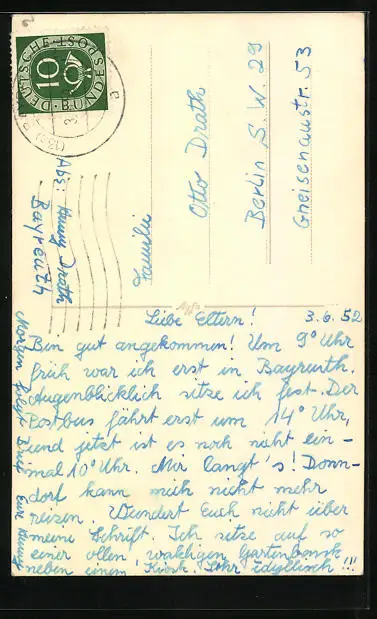 DEUTSCHE BUNDESPOST
10
Familie
Otto Drath
Berlin S.W. 29
Gneisenaustr. 53
Abs: Drath
Bayreuth
Liebe Eltern! 3.6.52
Bin gut angekommen! Um 9° Uhr
früh war ich erst in Bayreuth.
Augenblicklich sitze ich fest. Der
Postbus fährt erst um 14° Uhr,
und jetzt ist es noch nicht ein-
mal 10° Uhr. Mir langt's! Donn-
dorf kann mich nicht mehr
reizen. Wundert Euch nicht über
meine Schrift. Ich sitze auf so
einer ollen, wakligen Gartenbank
neben einem Kiosk. Sehr idyllisch!!!
Morgen folgt Brief Eure